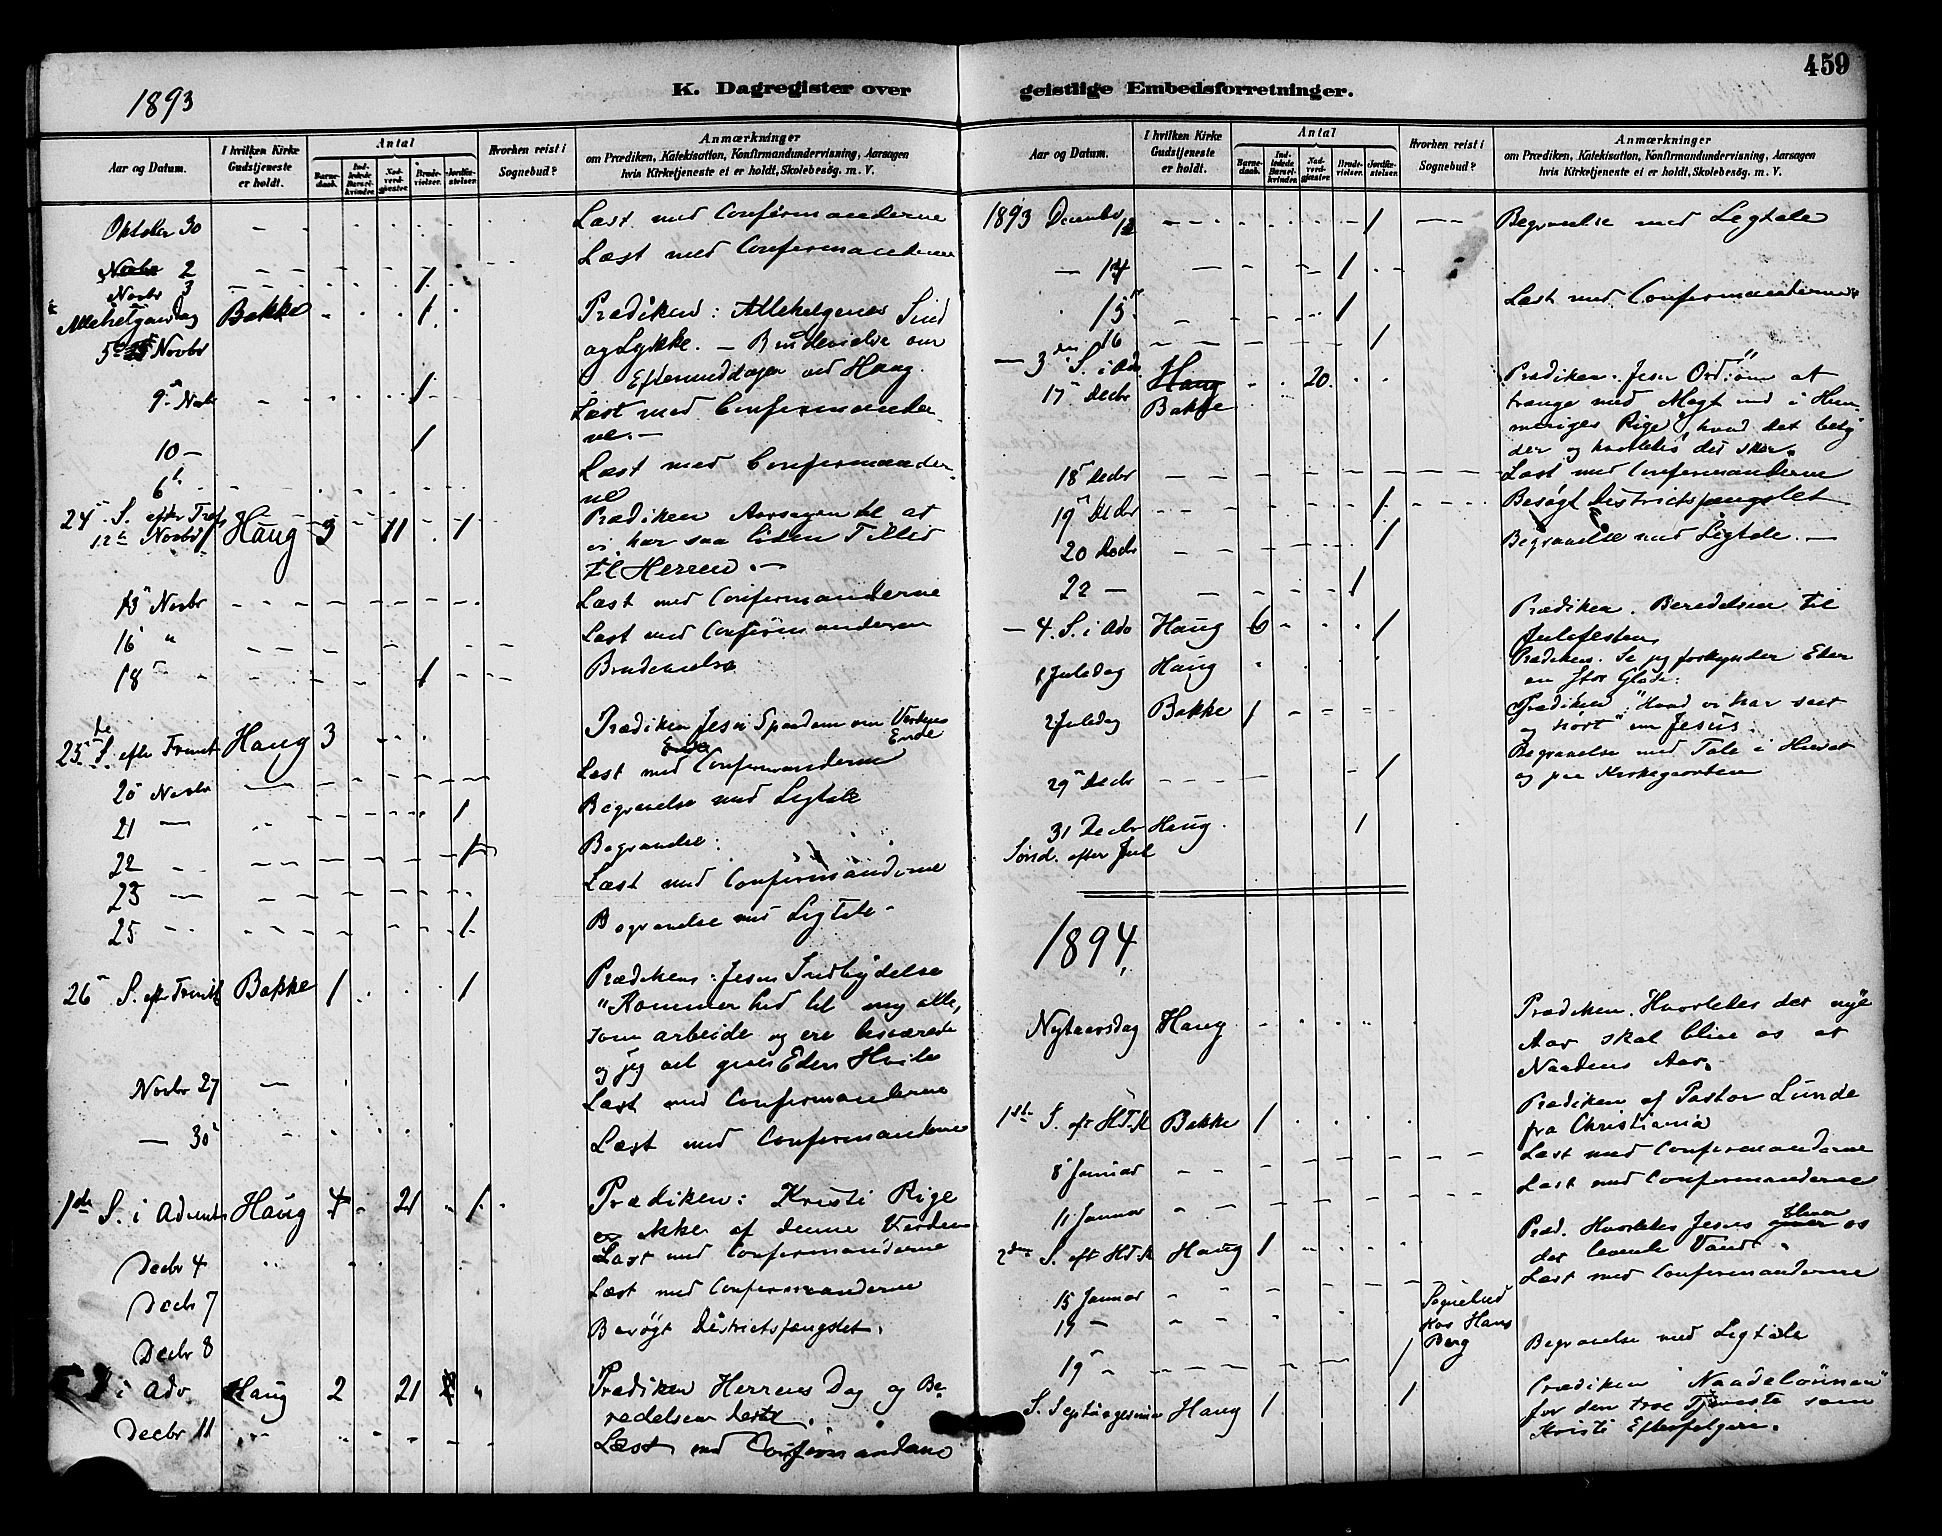 459
K. Dagregister over geistlige Embedsforretninger.
1893
Aar og Datum.
I hvilken Kirke Gudstjeneste er holdt.
Antal
Barnedaab.
Indledede Barselkvinder.
Nadverdgjæster.
Brudevielser.
Jordfæstelser.
Hvorhen reist i Sognebud?
Anmærkninger
om Prædiken, Katekisation, Konfirmandundervisning, Aarsagen
hvis Kirketjeneste ei er holdt, Skolebesøg. m. V.
Oktober 30 Læst med Confirmanderne
Novbr 2 Læst med Confirmanderne
Novbr 3 1
Allehelgensdag Bakke 1 Prædiken: Allehelgenes
5te Novbr og Lykke. — Brudevielse om
Eftermiddagen ved Haug.
9 Novb 1 Læst med Confirmander-
ne. —
10 — 1 Læst med Confirmander-
6 ne
24 S. efter Tref. Haug 3 11 1 Prædiken Aarsagen til at
12te Novbr vi har saa liden Tillid
til Herren. —
13 Novbr Læst med Confirmanderne
16 " Læst med Confirmanderne
18 " 1 Brudevielse
25de S. efter Trinit. Haug 3 Prædiken Jesu Spaadom om Verdens
Ende
20 Novbr Læst med Confirmanderne
21 — 1 Begravelse med Ligtale
22 1 Begravelse.
23 — Læst med Confirmanderne
25 1 Begravelse med Ligtale -
26 S. efter Trinit Bakke 1 1 Prædiken: Jesu Indbydelse
"Kommer hid til mig alle,
som arbeide og ere besværede
og jeg vil give Eder Hvile
Novbr 27 Læst med Confirmanderne
— 30 Læst med Confirmanderne
1ste S. i Advent Haug 4 21 1 Prædiken: Kristi Rige
er ikke af denne Verden
Decbr 4 Læst med Confirmanderne
Decbr 7 Læst med Confirmanderne
Decbr 8 Besøgt Districtsfængslet.
i Adv. Haug 2 21 Prædiken Herrens Dag og Be-
redelsen dertil.
Decbr 11 Læst med Confirmanderne
Aar og Datum.
I hvilken Kirke Gudstjeneste er holdt.
Antal
Barnedaab.
Indledede Barselkvinder.
Nadverdgjæstre.
Brudevielser.
Jordfæstelser.
Hvorhen reist i Sognebud?
Anmærkninger
om Prædiken, Katekisation, Konfirmandundervisning, Aarsagen
hvis Kirketjeneste ei er holdt, Skolebesøg. m. V.
1893 December 12 1 Begravelse med Ligtale
— 14 1
15 1 Læst med Confirmanderne
den 16 1
— 3 S. i Adv. Haug 20 Prædiken: Jesu Ord om at
17 Decbr Bakke trænge med Magt ind i Him-
meriges Rige, hvad det bety-
der og hvorledes det sker.
18 Decbr Læst med Confirmanderne
19 Decbr 1 Besøgt Districtsfængslet
20 Decbr 1 Begravelse med Ligtale. —
22 — 1
— 4. S. i Adv Haug 6 1 Prædiken. Beredelsen til
Julefesten
1 Juledag Haug Prædiken. Se jeg forkynder Eder
en stor Glæde.
2 Juledag Bakke 1 Prædiken "Hvad vi har seet
og hørt" om Jesus.
29 Decbr 1 Begravelse med Tale i Huset
og paa Kirkegaarden
31 Decbr Haug. 1
Sønd. efter Jul
1894,
Nytaarsdag Haug Prædiken. Hvorledes det nye
Aar skal blive os et
Naadens Aar.
1ste S. eft H.T.K Bakke 1 Prædiken af Pastor Lunde
fra Christiania
8 Januar Læst med Confirmanderne
11 Januar Læst med Confirmanderne
2den S. eft H.T.K Haug 1 Præd. Hvorledes Jesus giver os
det levende Vand.
15 Januar Læst med Confirmanderne
19 — Sognebud
hos Hans
Berg
19 1 Begravelse med Ligtale
S. Septuagesima Haug 1 1 Prædiken "Naadelønnen"
for den tro Tjeneste som
Kristi Efterfølgere.